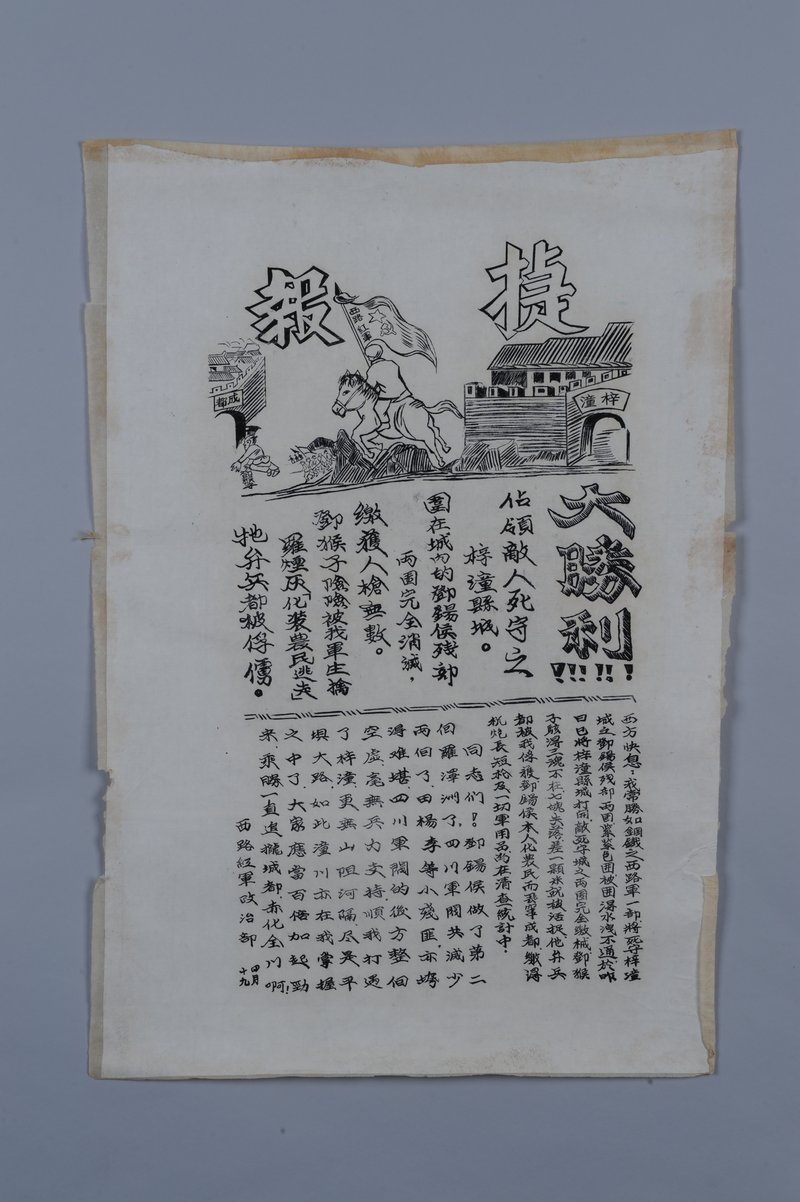 捷報
西路紅軍
梓潼
成都
大勝利!!!!!
佔領敵人死守之
梓潼縣城。
圍在城內的鄧錫侯殘部
兩團完全消滅，
繳獲人槍無數。
鄧猴子險險被我軍生擒
羅煙灰「化裝農民逃走」
牠弁兵都被俘虜。
西方快息：我常勝如鋼鐵之西路軍一部將死守梓潼
城之鄧錫侯殘部兩团緊緊包囲被困得水洩不通於昨
日已將梓潼縣城打開敵死守城之两団完全繳械鄧猴
子駭得三魂不在七魄失落差一顆米就被活捉他弁兵
都被我俘獲鄧錫侯本人化裝民而成都繳得
机炮長短枪及一切軍用品尚在清查統計中.
同志們！鄧錫侯做了第二
個羅澤洲了，四川軍閥共減少
兩個了．田楊李等小殘匪，亦
得难堪．四川軍閥的後方整個
空虛毫無兵力支持順我打過
了梓潼．更無山阻河隔尽是平
壩大路．如此潼川亦在我掌握
之中了．大家應當百倍加起勁
來，乘勝一直追攏城都．赤化全川啊！
西路紅軍政治部 四月十九